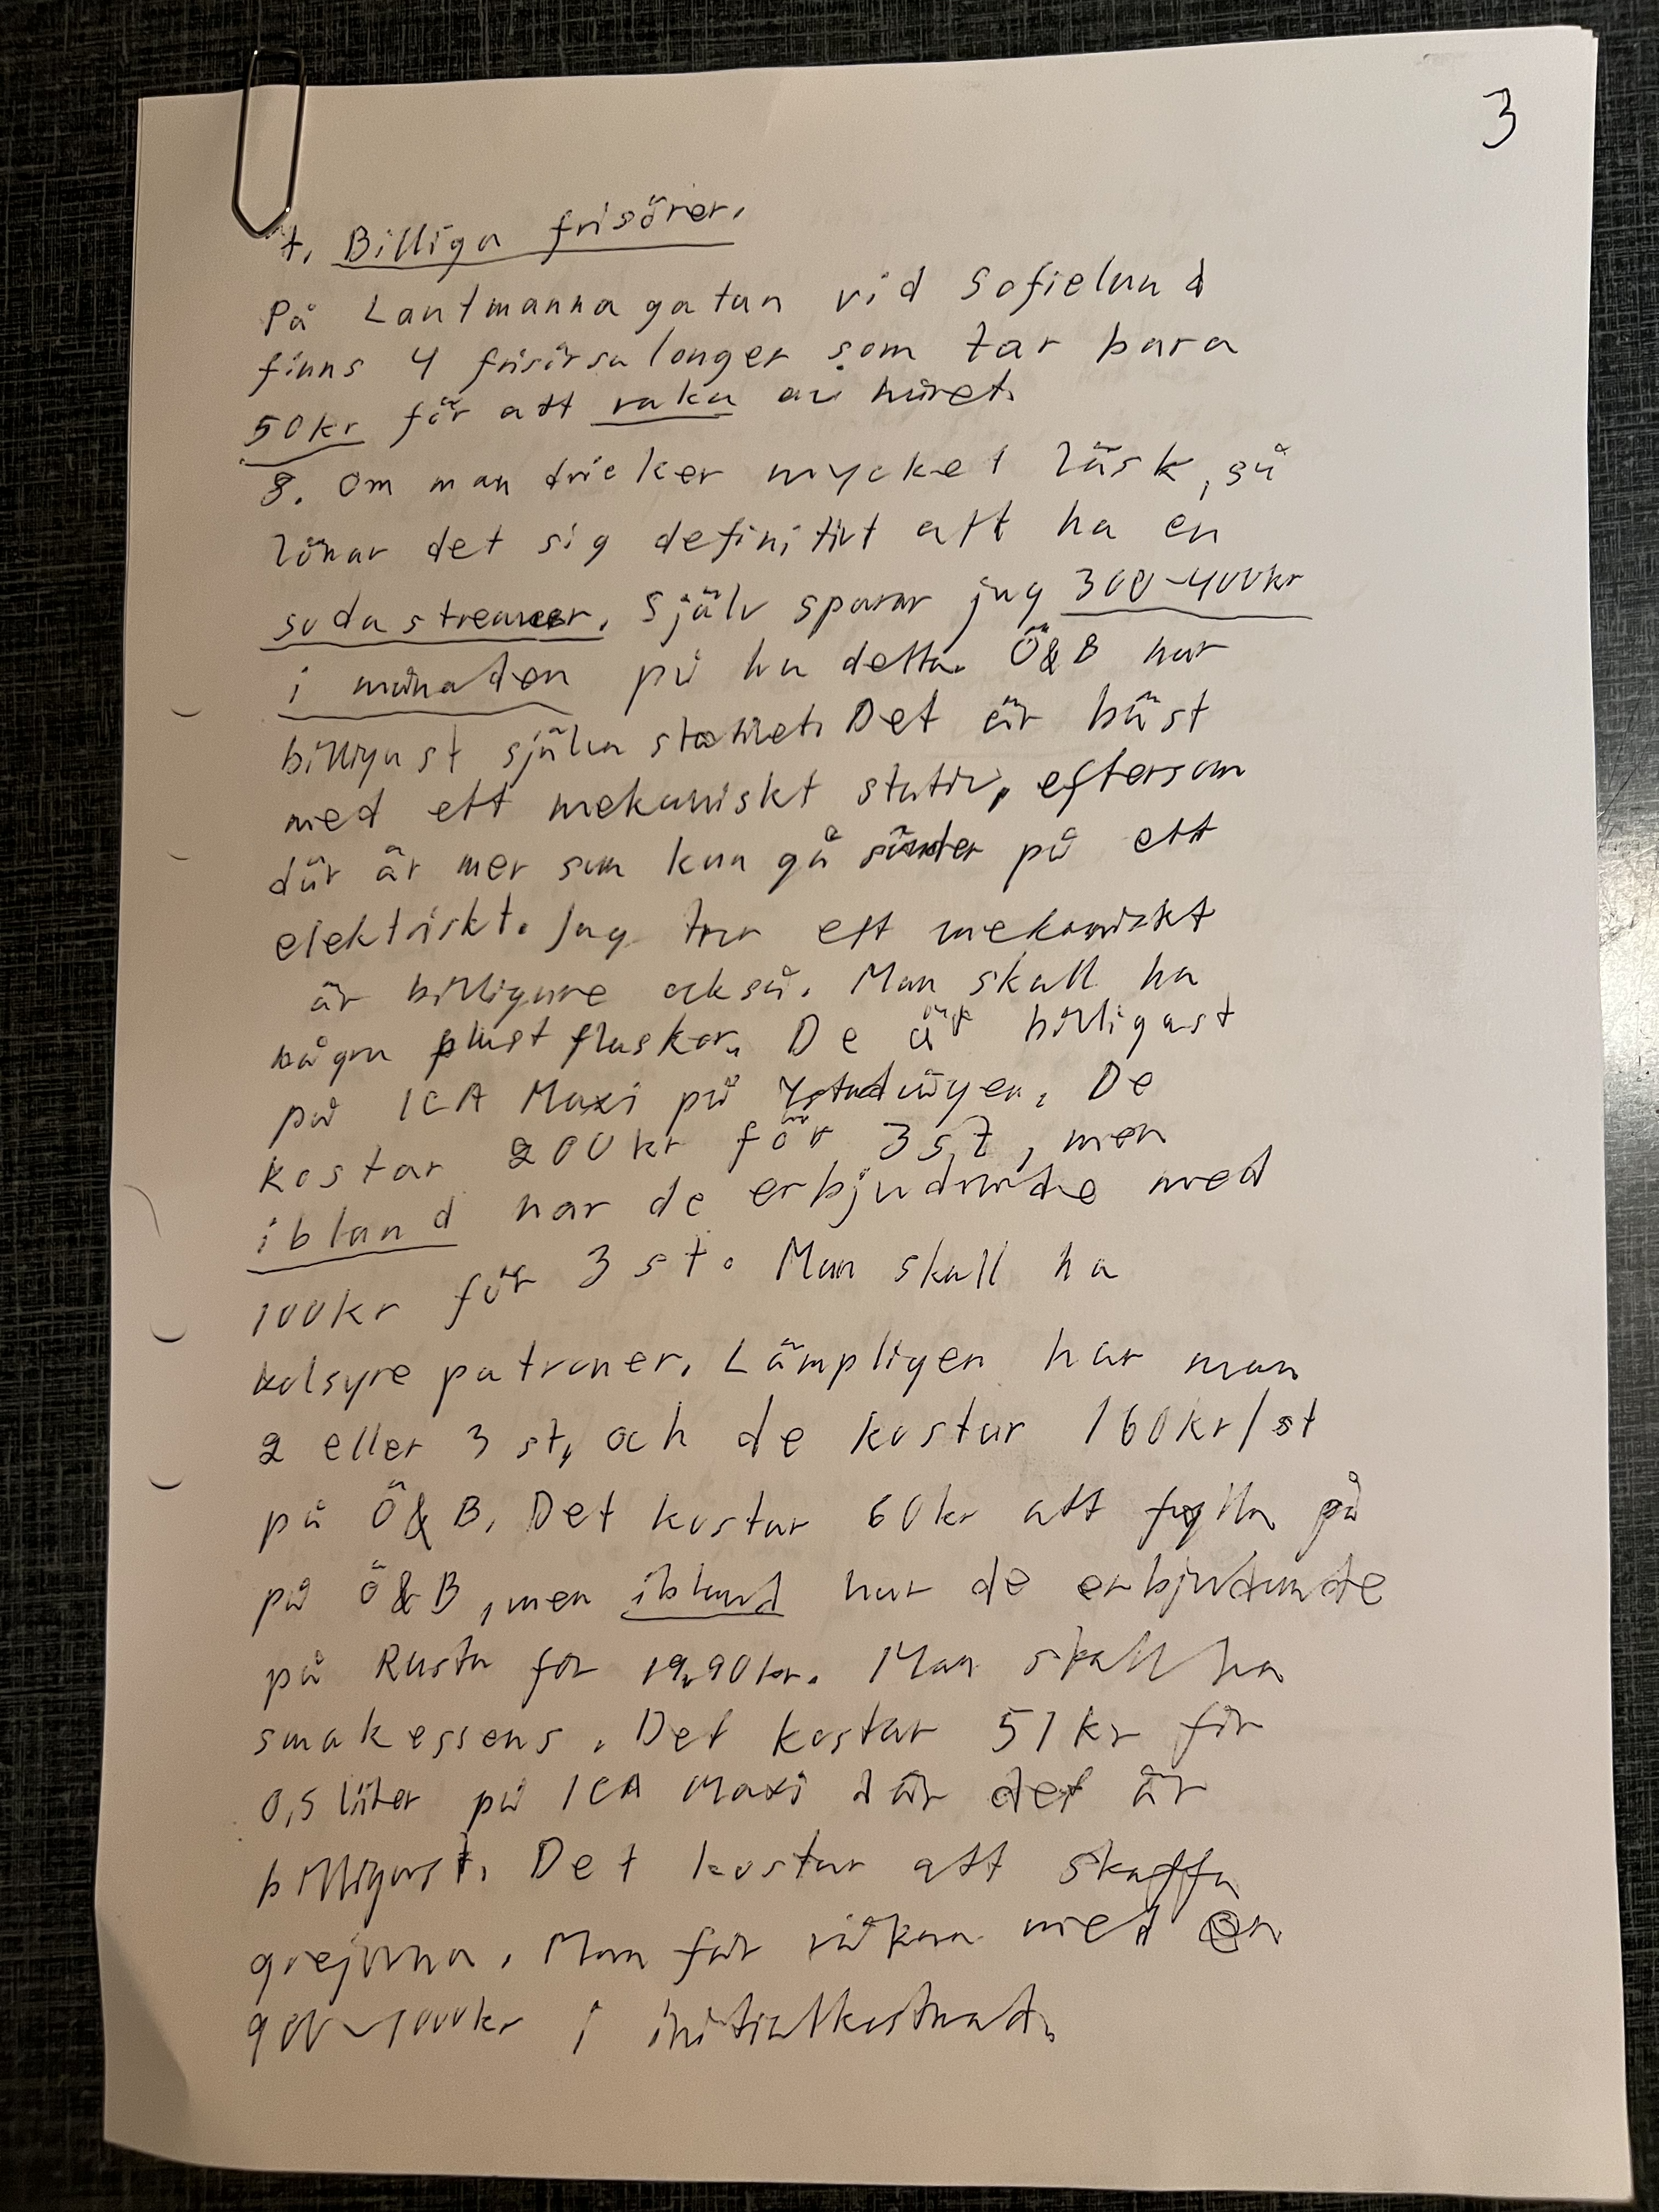 3
7. Billiga frisörer.
På Lantmannagatan vid Sofielund
finns 4 frisörsalonger som tar bara
50kr för att raka av håret.
8. Om man dricker mycket läsk, så
lönar det sig definitivt att ha en
sodastreamer. Själv sparar jag 300-400kr
i månaden på ha detta. Ö&B har
billigast själva stativet. Det är bäst
med ett mekaniskt stativ, eftersom
där är mer som kan gå sönder på ett
elektriskt. Jag tror ett mekaniskt
är billigare också. Man skall ha
några plastflaskor. De är billigast
på ICA Maxi på Ystadvägen. De
kostar 200kr för 3 st, men
ibland har de erbjudande med
100kr för 3 st. Man skall ha
kolsyre patroner. Lämpligen har man
2 eller 3 st, och de kostar 160kr/st
på Ö&B. Det kostar 60kr att fylla på
på Ö&B, men ibland har de erbjudande
på Rusta för 19,90kr. Man skall ha
smakessens. Det kostar 51kr för
0,5 liter på ICA Maxi där det är
billigast. Det kostar att skaffa
grejorna. Man får räkna med en
900-1000kr i initialkostnad.